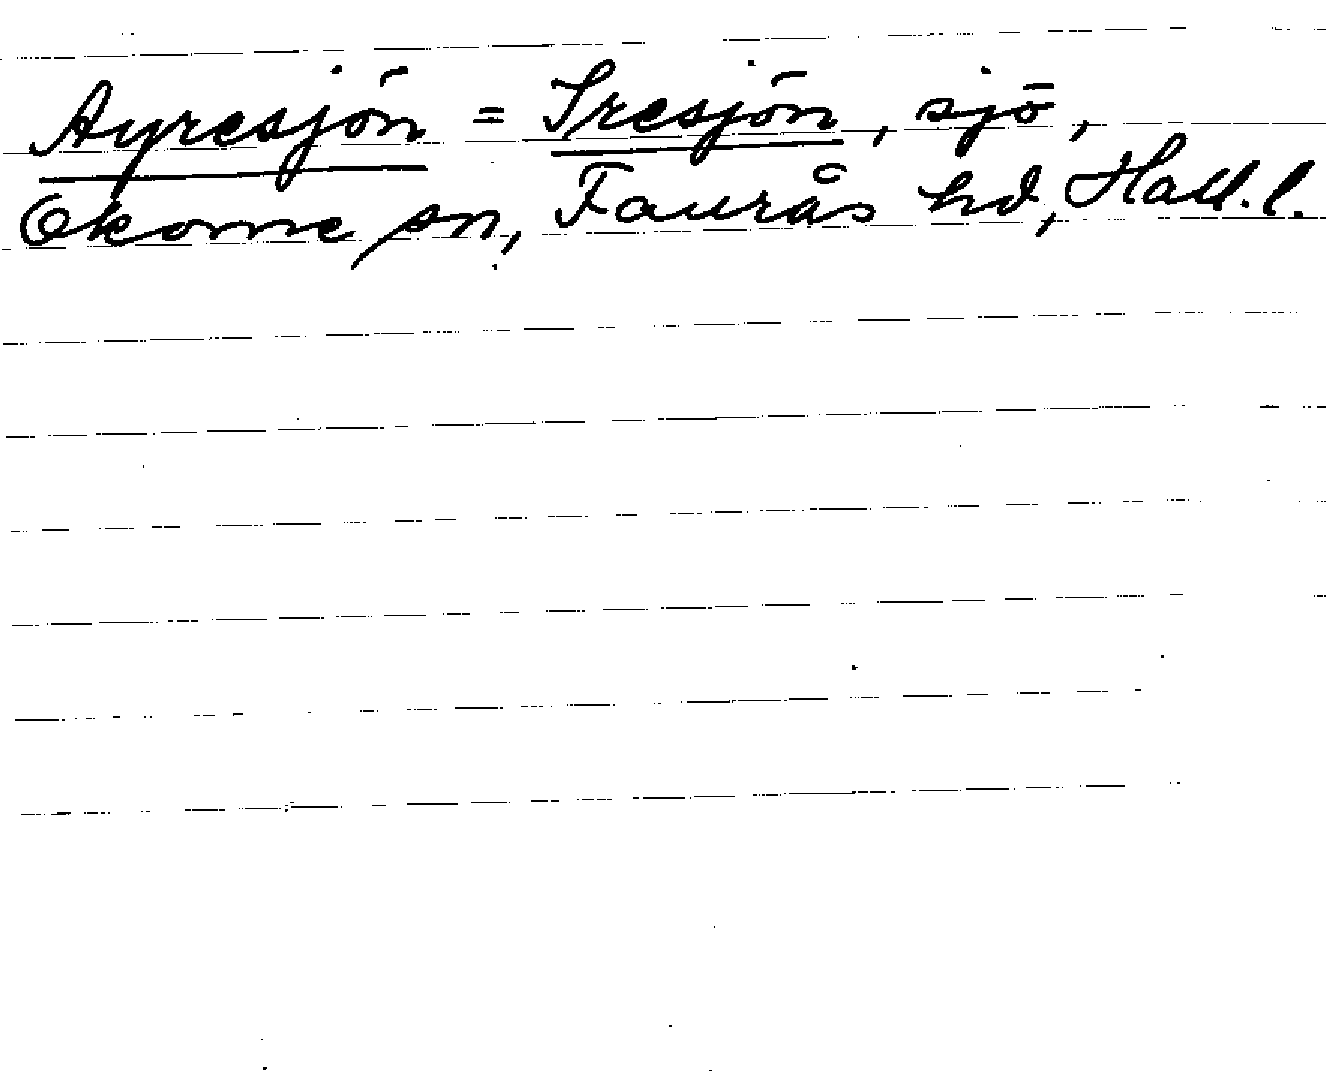 Ayresjön = Iresjön, sjö,
Okome sn, Faurås hd, Hall. l.